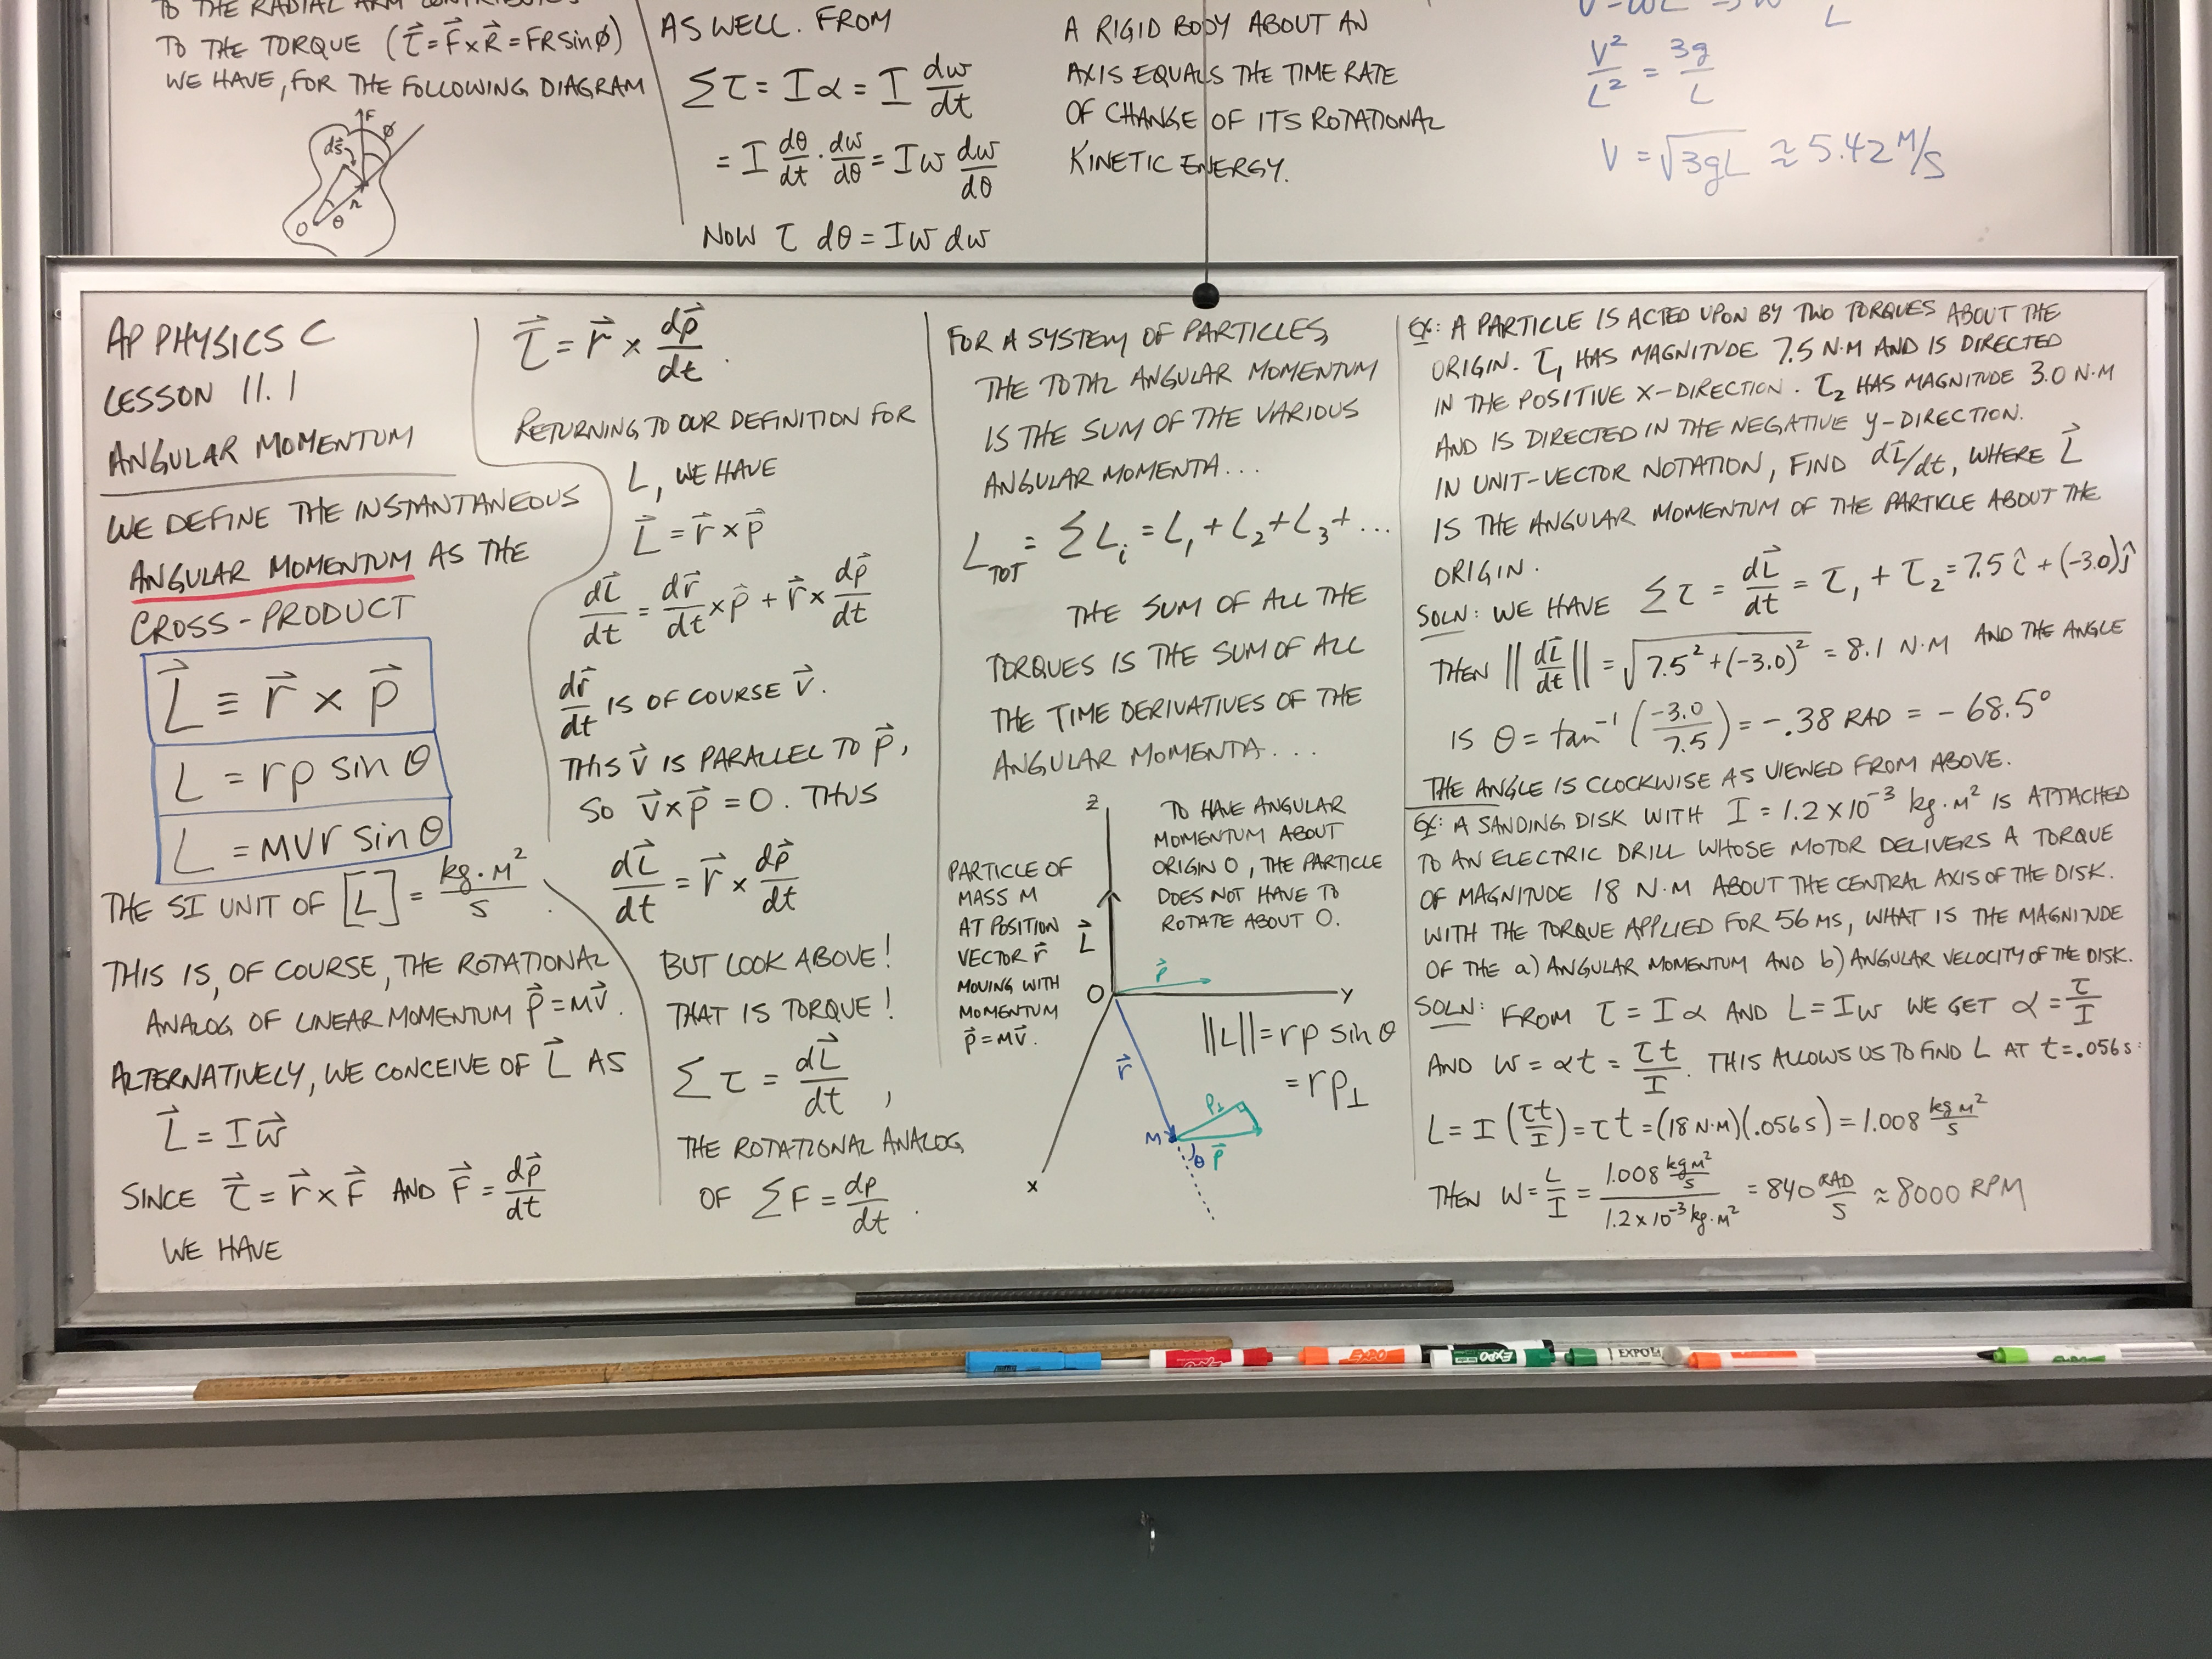 TO THE RADIAL ARM CONTRIBUTES
TO THE TORQUE (τ⃗ = F⃗ × R⃗ = FR sin φ)
WE HAVE, FOR THE FOLLOWING DIAGRAM
F
φ
ds⃗
r
O
θ
AS WELL. FROM
Στ = Iα = I dω/dt
= I dθ/dt · dω/dθ = Iω dω/dθ
NOW τ dθ = Iω dω
A RIGID BODY ABOUT AN
AXIS EQUALS THE TIME RATE
OF CHANGE OF ITS ROTATIONAL
KINETIC ENERGY.
V²/L² = 3g/L
V = √3gL ≈ 5.42 M/S
AP PHYSICS C
LESSON 11.1
ANGULAR MOMENTUM
WE DEFINE THE INSTANTANEOUS
ANGULAR MOMENTUM AS THE
CROSS-PRODUCT
L⃗ ≡ r⃗ × p⃗
L = rp sin θ
L = mvr sin θ
THE SI UNIT OF [L] = kg·M²/S.
THIS IS, OF COURSE, THE ROTATIONAL
ANALOG OF LINEAR MOMENTUM p⃗ = MV⃗.
ALTERNATIVELY, WE CONCEIVE OF L⃗ AS
L⃗ = Iω⃗
SINCE τ⃗ = r⃗ × F⃗ AND F⃗ = dp⃗/dt
WE HAVE
τ⃗ = r⃗ × dp⃗/dt.
RETURNING TO OUR DEFINITION FOR
L, WE HAVE
L⃗ = r⃗ × p⃗
dL⃗/dt = dr⃗/dt × p⃗ + r⃗ × dp⃗/dt
dr⃗/dt IS OF COURSE v⃗.
THIS v⃗ IS PARALLEL TO p⃗,
SO v⃗ × p⃗ = 0. THUS
dL⃗/dt = r⃗ × dp⃗/dt
BUT LOOK ABOVE!
THAT IS TORQUE!
Στ = dL⃗/dt,
THE ROTATIONAL ANALOG
OF ΣF = dp/dt.
FOR A SYSTEM OF PARTICLES,
THE TOTAL ANGULAR MOMENTUM
IS THE SUM OF THE VARIOUS
ANGULAR MOMENTA...
L_TOT = ΣLᵢ = L₁ + L₂ + L₃ + ...
THE SUM OF ALL THE
TORQUES IS THE SUM OF ALL
THE TIME DERIVATIVES OF THE
ANGULAR MOMENTA...
PARTICLE OF
MASS M
AT POSITION
VECTOR r⃗
MOVING WITH
MOMENTUM
p⃗ = MV⃗.
Z
L⃗
O
p⃗
Y
X
r⃗
M
θ
p⊥
p⃗
TO HAVE ANGULAR
MOMENTUM ABOUT
ORIGIN O, THE PARTICLE
DOES NOT HAVE TO
ROTATE ABOUT O.
||L|| = rp sin θ
= rp⊥
EX: A PARTICLE IS ACTED UPON BY TWO TORQUES ABOUT THE
ORIGIN. τ₁ HAS MAGNITUDE 7.5 N·M AND IS DIRECTED
IN THE POSITIVE X-DIRECTION. τ₂ HAS MAGNITUDE 3.0 N·M
AND IS DIRECTED IN THE NEGATIVE y-DIRECTION.
IN UNIT-VECTOR NOTATION, FIND dL⃗/dt, WHERE L⃗
IS THE ANGULAR MOMENTUM OF THE PARTICLE ABOUT THE
ORIGIN.
SOLN: WE HAVE Στ = dL⃗/dt = τ₁ + τ₂ = 7.5 î + (-3.0)ĵ
THEN ||dL⃗/dt|| = √7.5² + (-3.0)² = 8.1 N·M AND THE ANGLE
IS θ = tan⁻¹(-3.0/7.5) = -.38 RAD = -68.5°
THE ANGLE IS CLOCKWISE AS VIEWED FROM ABOVE.
EX: A SANDING DISK WITH I = 1.2 × 10⁻³ kg·M² IS ATTACHED
TO AN ELECTRIC DRILL WHOSE MOTOR DELIVERS A TORQUE
OF MAGNITUDE 18 N·M ABOUT THE CENTRAL AXIS OF THE DISK.
WITH THE TORQUE APPLIED FOR 56 MS, WHAT IS THE MAGNITUDE
OF THE a) ANGULAR MOMENTUM AND b) ANGULAR VELOCITY OF THE DISK.
SOLN: FROM τ = Iα AND L = Iω WE GET α = τ/I
AND ω = αt = τt/I. THIS ALLOWS US TO FIND L AT t = .056 s:
L = I(τt/I) = τt = (18 N·M)(.056 s) = 1.008 kg M²/S
THEN ω = L/I = 1.008 kg M²/S / 1.2 × 10⁻³ kg·M² = 840 RAD/S ≈ 8000 RPM
EXPO
EXPO
EXPO
EXPO